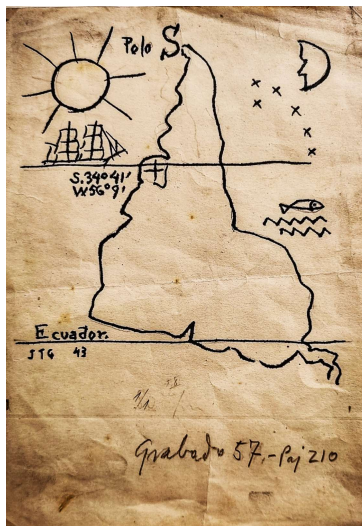 Polo S.
S. 34° 41'
W. 56° 9'
Ecuador.
JTG 43
Grabado 57.- Paj 210